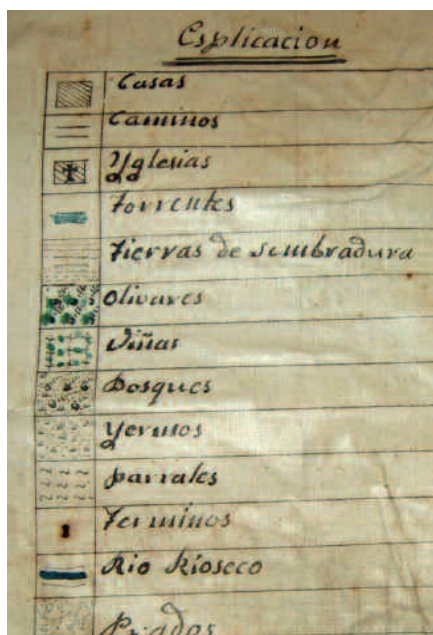 Esplicacion
Casas
Caminos
Yglesias
Torrentes
Tierras de sembradura
Olivares
Viñas
Bosques
Yermos
parrales
Terminos
Rio Rioseco
Prados